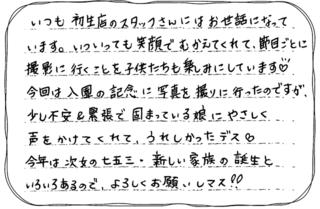 いつも 初生店のスタッフさんにはお世話になって
います。いついっても笑顔でむかえてくれて、節目ごとに
撮影に行くことを子供たちも楽しみにしています♡
今回は入園の記念に写真を撮りに行ったのですが、
少し不安&緊張で固まっている娘にやさしく
声をかけてくれて、うれしかったデス♡
今年は次女の七五三・新しい家族の誕生と
いろいろあるので、よろしくお願いしマス!!